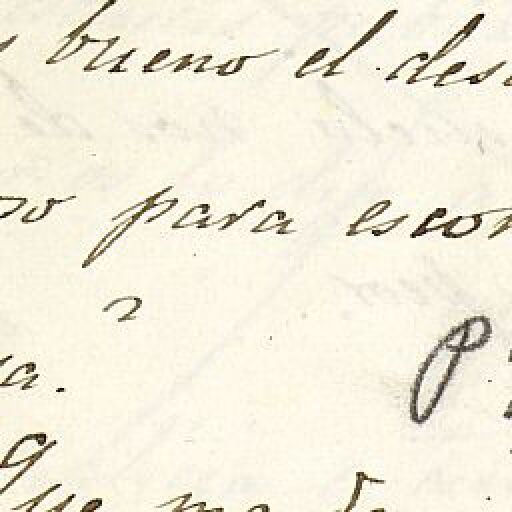 bueno el des
so para escon
a.
P
Que